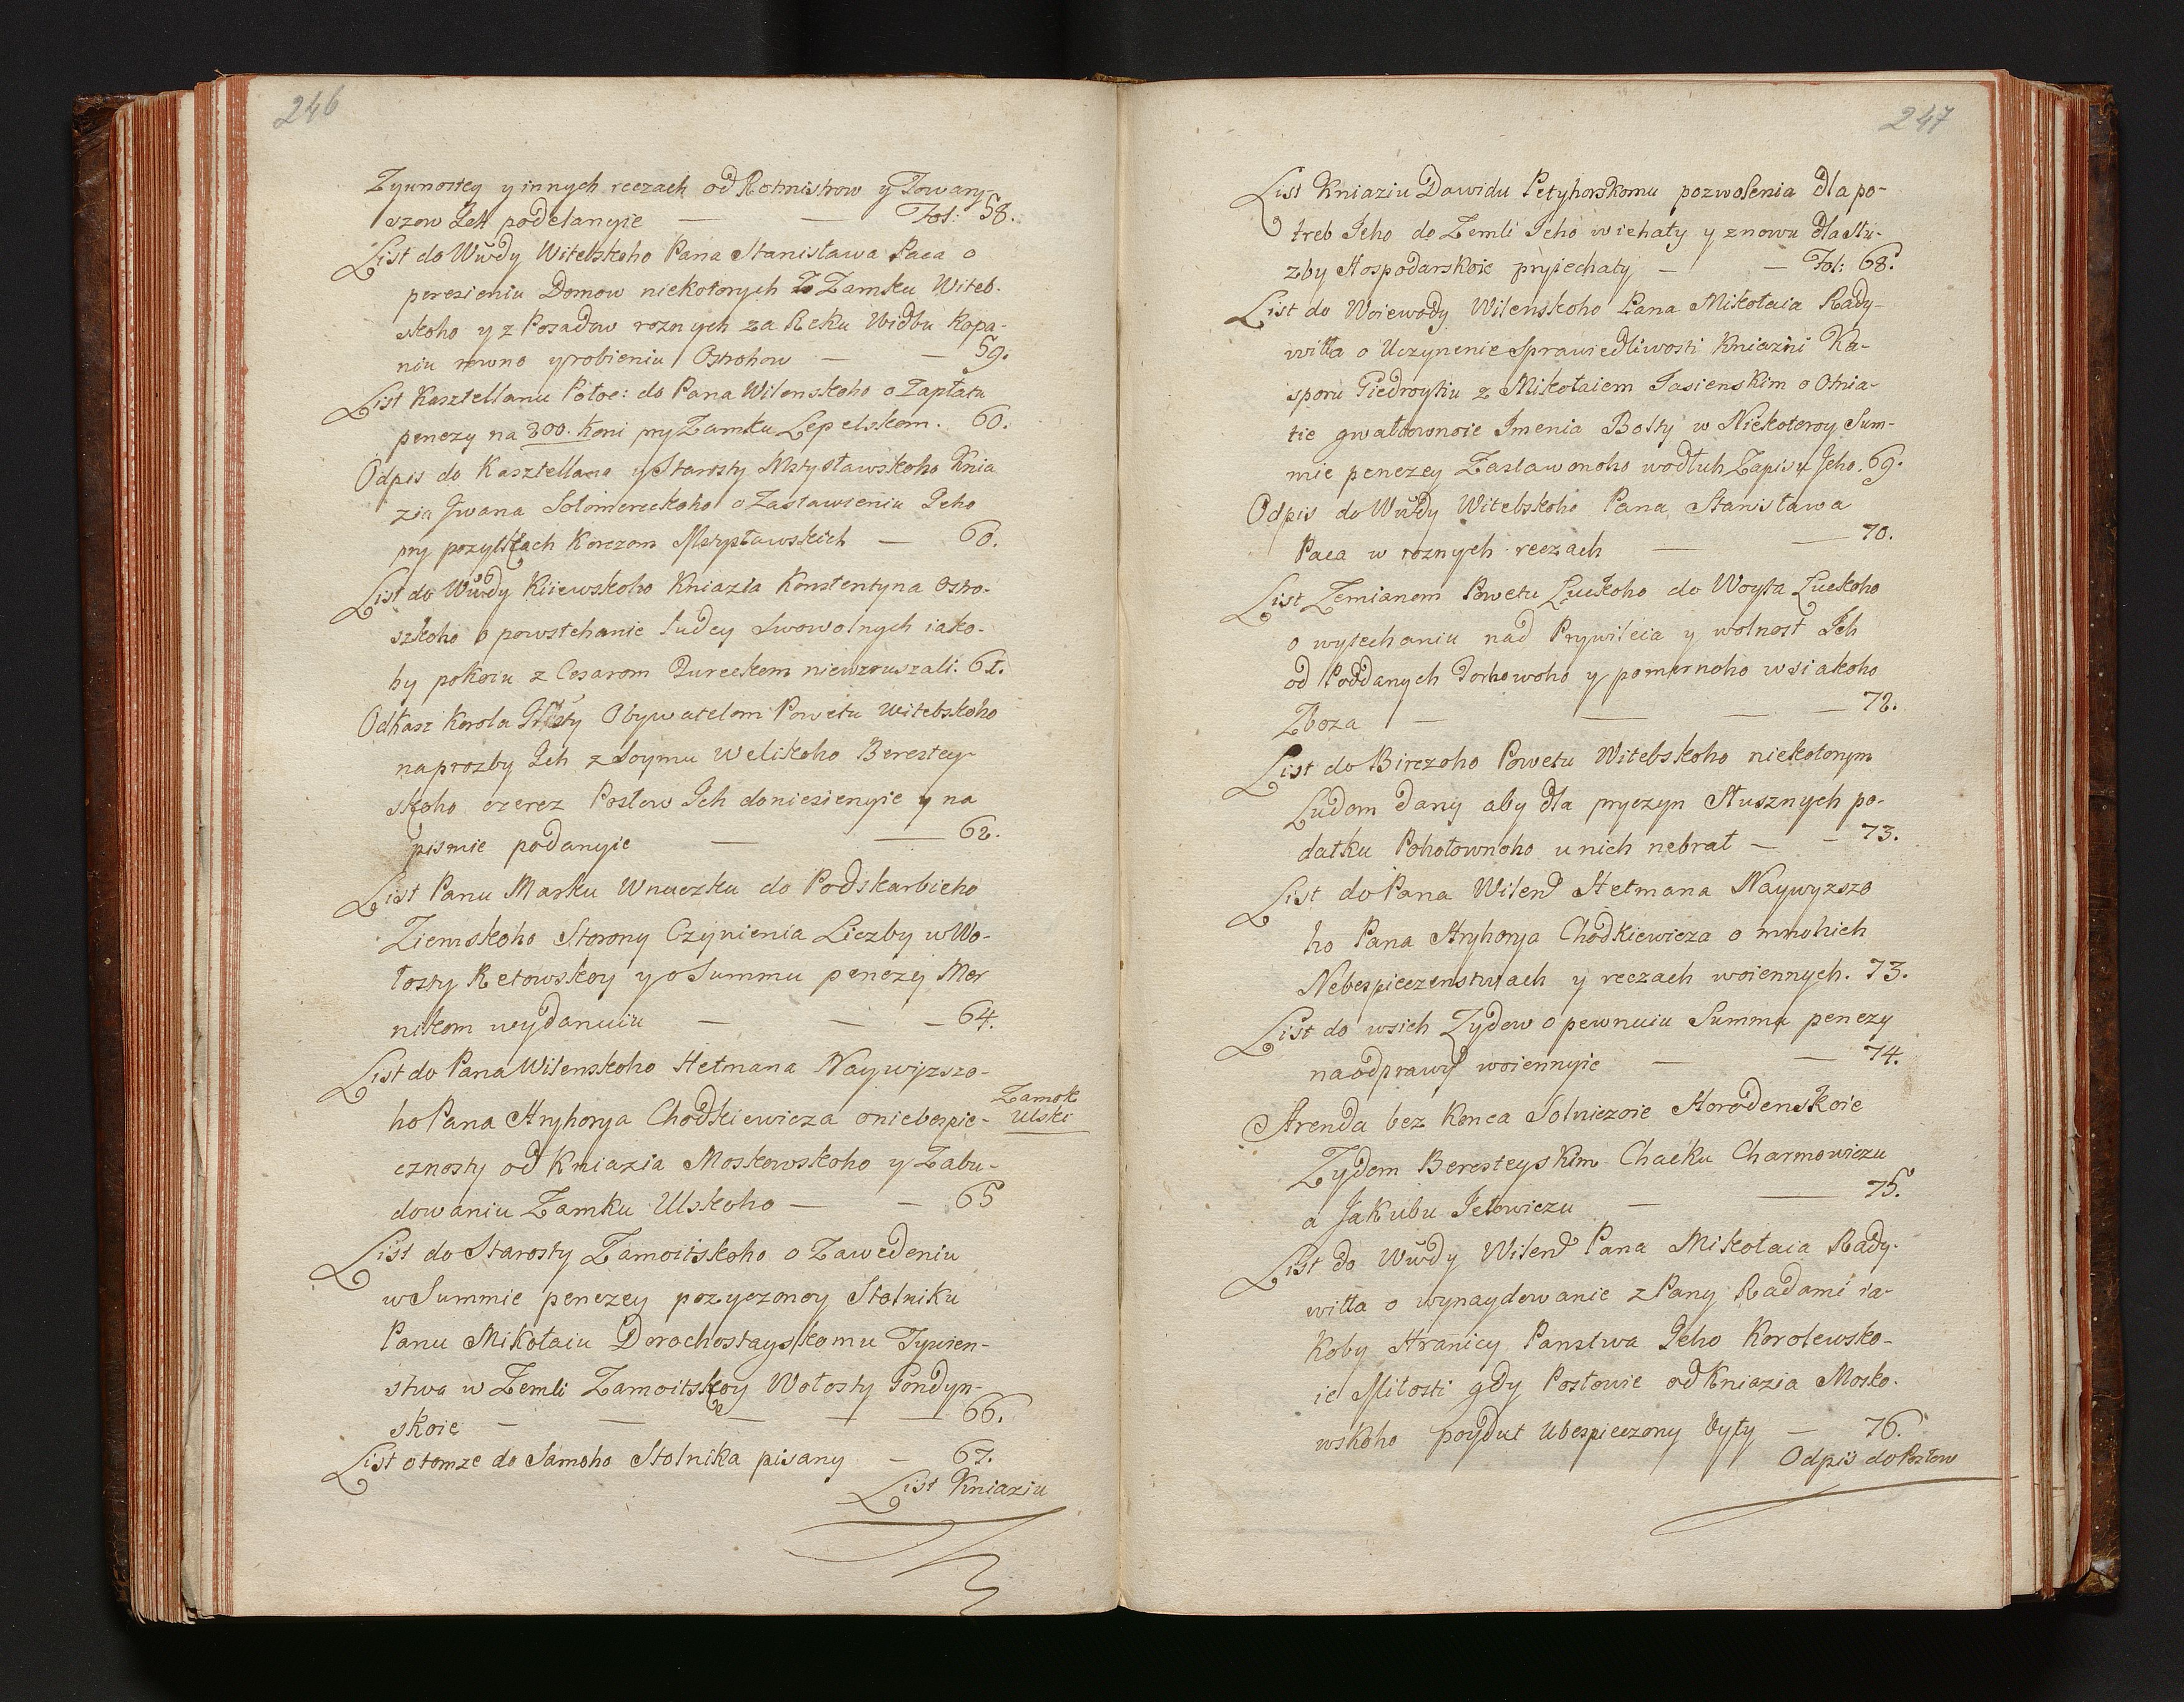 246
Zywnostey y innych reczach od Rotmistrow y Towary-
szow Ich podelanyie — — Fol: 58.
List do Wwdy Witebskoho Pana Stanisława Paca o
perezieniu Domow niekotorych z Zamku Witeb-
skoho y z Posadow roznych za Reku Widbu Kopa-
niu rowno y robieniu Ostrohow — — 59.
List Kasztellanu Połoc: do Pana Wilenskoho o Zapłatu
penezy na 200. Koni pry Zamku Lepelskom. 60.
Odpis do Kasztellana y Starosty Mstysławskoho Knia
zia Jwana Sołomereckoho o Zastawieniu Jeho
pry pozytkach Korczom Mstysławskich — 60.
List do Wwdy Kiiewskoho Kniazia Konstentyna Ostro-
szkoho o powstehanie ludey Swowolnych iako-
by pokoiu z Cesarom Tureckom niewzruszali. 61.
Odkaz Korola Obywatelom Powetu Witebskoho
na prozby Ich z Soymu Welikoho Berestey-
skoho czerez Posłow Ich doniesienyie y na
pismie podanyie — — 62.
List Panu Marku Wnuczku do Podskarbieho
Ziemskoho Storony Czynienia Liczby w Wo-
łosty Retowskoy y o Summu penezy Mer
nikom wydanuiu — — — 64.
List do Pana Wilenskoho Hetmana Naywyzszo-
ho Pana Hryhorya Chodkiewicza o niebespie-
Zamok
Ulski
cznosty od Kniazia Moskowskoho y Zabu-
dowaniu Zamku Ulskoho — — 65
List do Starosty Zamoitskoho o Zawedeniu
w Summie penezey pozyczonoy Stolniku
Panu Mikołaiu Dorochostayskomu Tywien-
stwa w Zemli Zamoitskoy Wołosty Gondyn-
skoie — — — — — 66.
List o tomze do Samoho Stolnika pisany — 67.
List Kniaziu
247
List Kniaziu Dawidu Petyhorskomu pozwolenia dla po-
treb Jeho do Zemli Jeho wiehaty y znowu dla słu-
zby Hospodarskoie pryiechaty — — Fol: 68.
List do Woiewody Wilenskoho Pana Mikołaia Rady-
wiłła o Uczynenie Sprawiedliwosti Kniazni Ka-
sporu Giedroytiu z Mikołaiem Jasienskim o Otnia-
tie gwałtownoie Jmenia Bolty w Niekotoroy Sum-
mie penezey Zastawonoho wodłuh Zapisu Jeho. 69.
Odpis do Wwdy Witebskoho Pana Stanisława
Paca w roznych reczach — — 70.
List Zemianom Powetu Łuckoho do Woyta Łuckoho
o wytechaniu nad Prywileia y wolnost Ich
od Poddanych Torhowoho y pomernoho wsiakoho
Zboza — — — — 72.
List do Birczoho Powetu Witebskoho niekotorym
Ludom dany aby dla pryczyn Słusznych po-
datku Pohołownoho u nich nebrał — — 73.
List do Pana Wilend Hetmana Naywyzszo
ho Pana Hryhorya Chodkiewicza o mnohich
Nebespieczenstwach y reczach woiennych. 73.
List do wsich Zydow o pewnuiu Summu penezy
na odprawy woiennyie — — 74.
Arenda bez Konca Solniczoie Horodenskoie
Zydom Beresteyskim Chacku Charmowiczu
a Jakubu Jełowiczu — — 75.
List do Wwdy Wilend Pana Mikołaia Rady-
wiłła o wynaydowanie z Pany Radami ia-
koby Hranicy Panstwa Jeho Korolewsko-
ie Miłosti gdy Posłowie od Kniazia Mosko-
wskoho poydut Ubespieczony byly — 76.
Odpis do Posłow